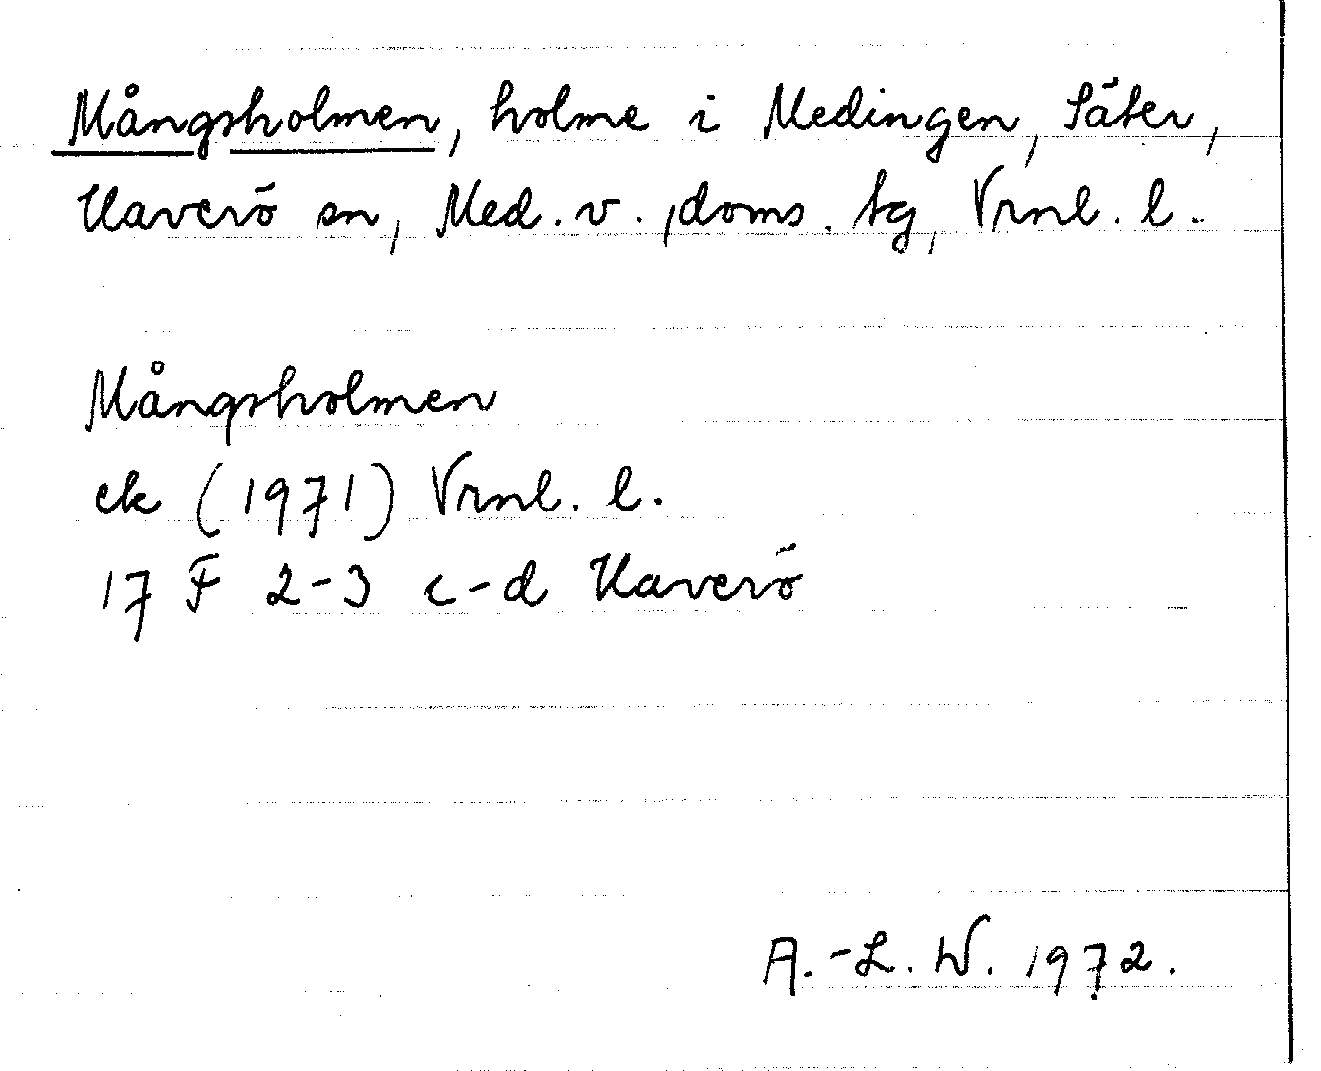 Mångsholmen, holme i Medingen, Säter,
Haverö sn, Med. v. , doms. tg, Vrnl. l.
Mångsholmen
ek (1971) Vrnl. l.
17 F 2-3 c-d Haverö
A.-L. W. 1972.